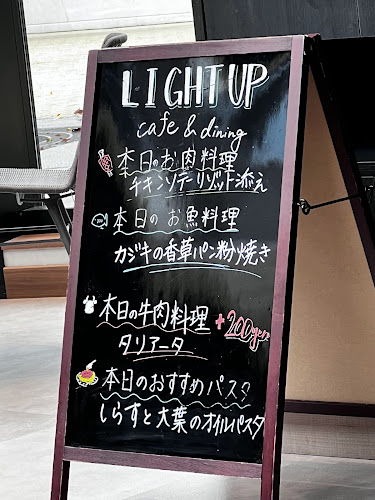 LIGHT UP
cafe & dining
本日のお肉料理
チキンソテーリゾット添え
本日のお魚料理
カジキの香草パン粉焼き
本日の牛肉料理 +200yen
タリアータ
本日のおすすめパスタ
しらすと大葉のオイルパスタ